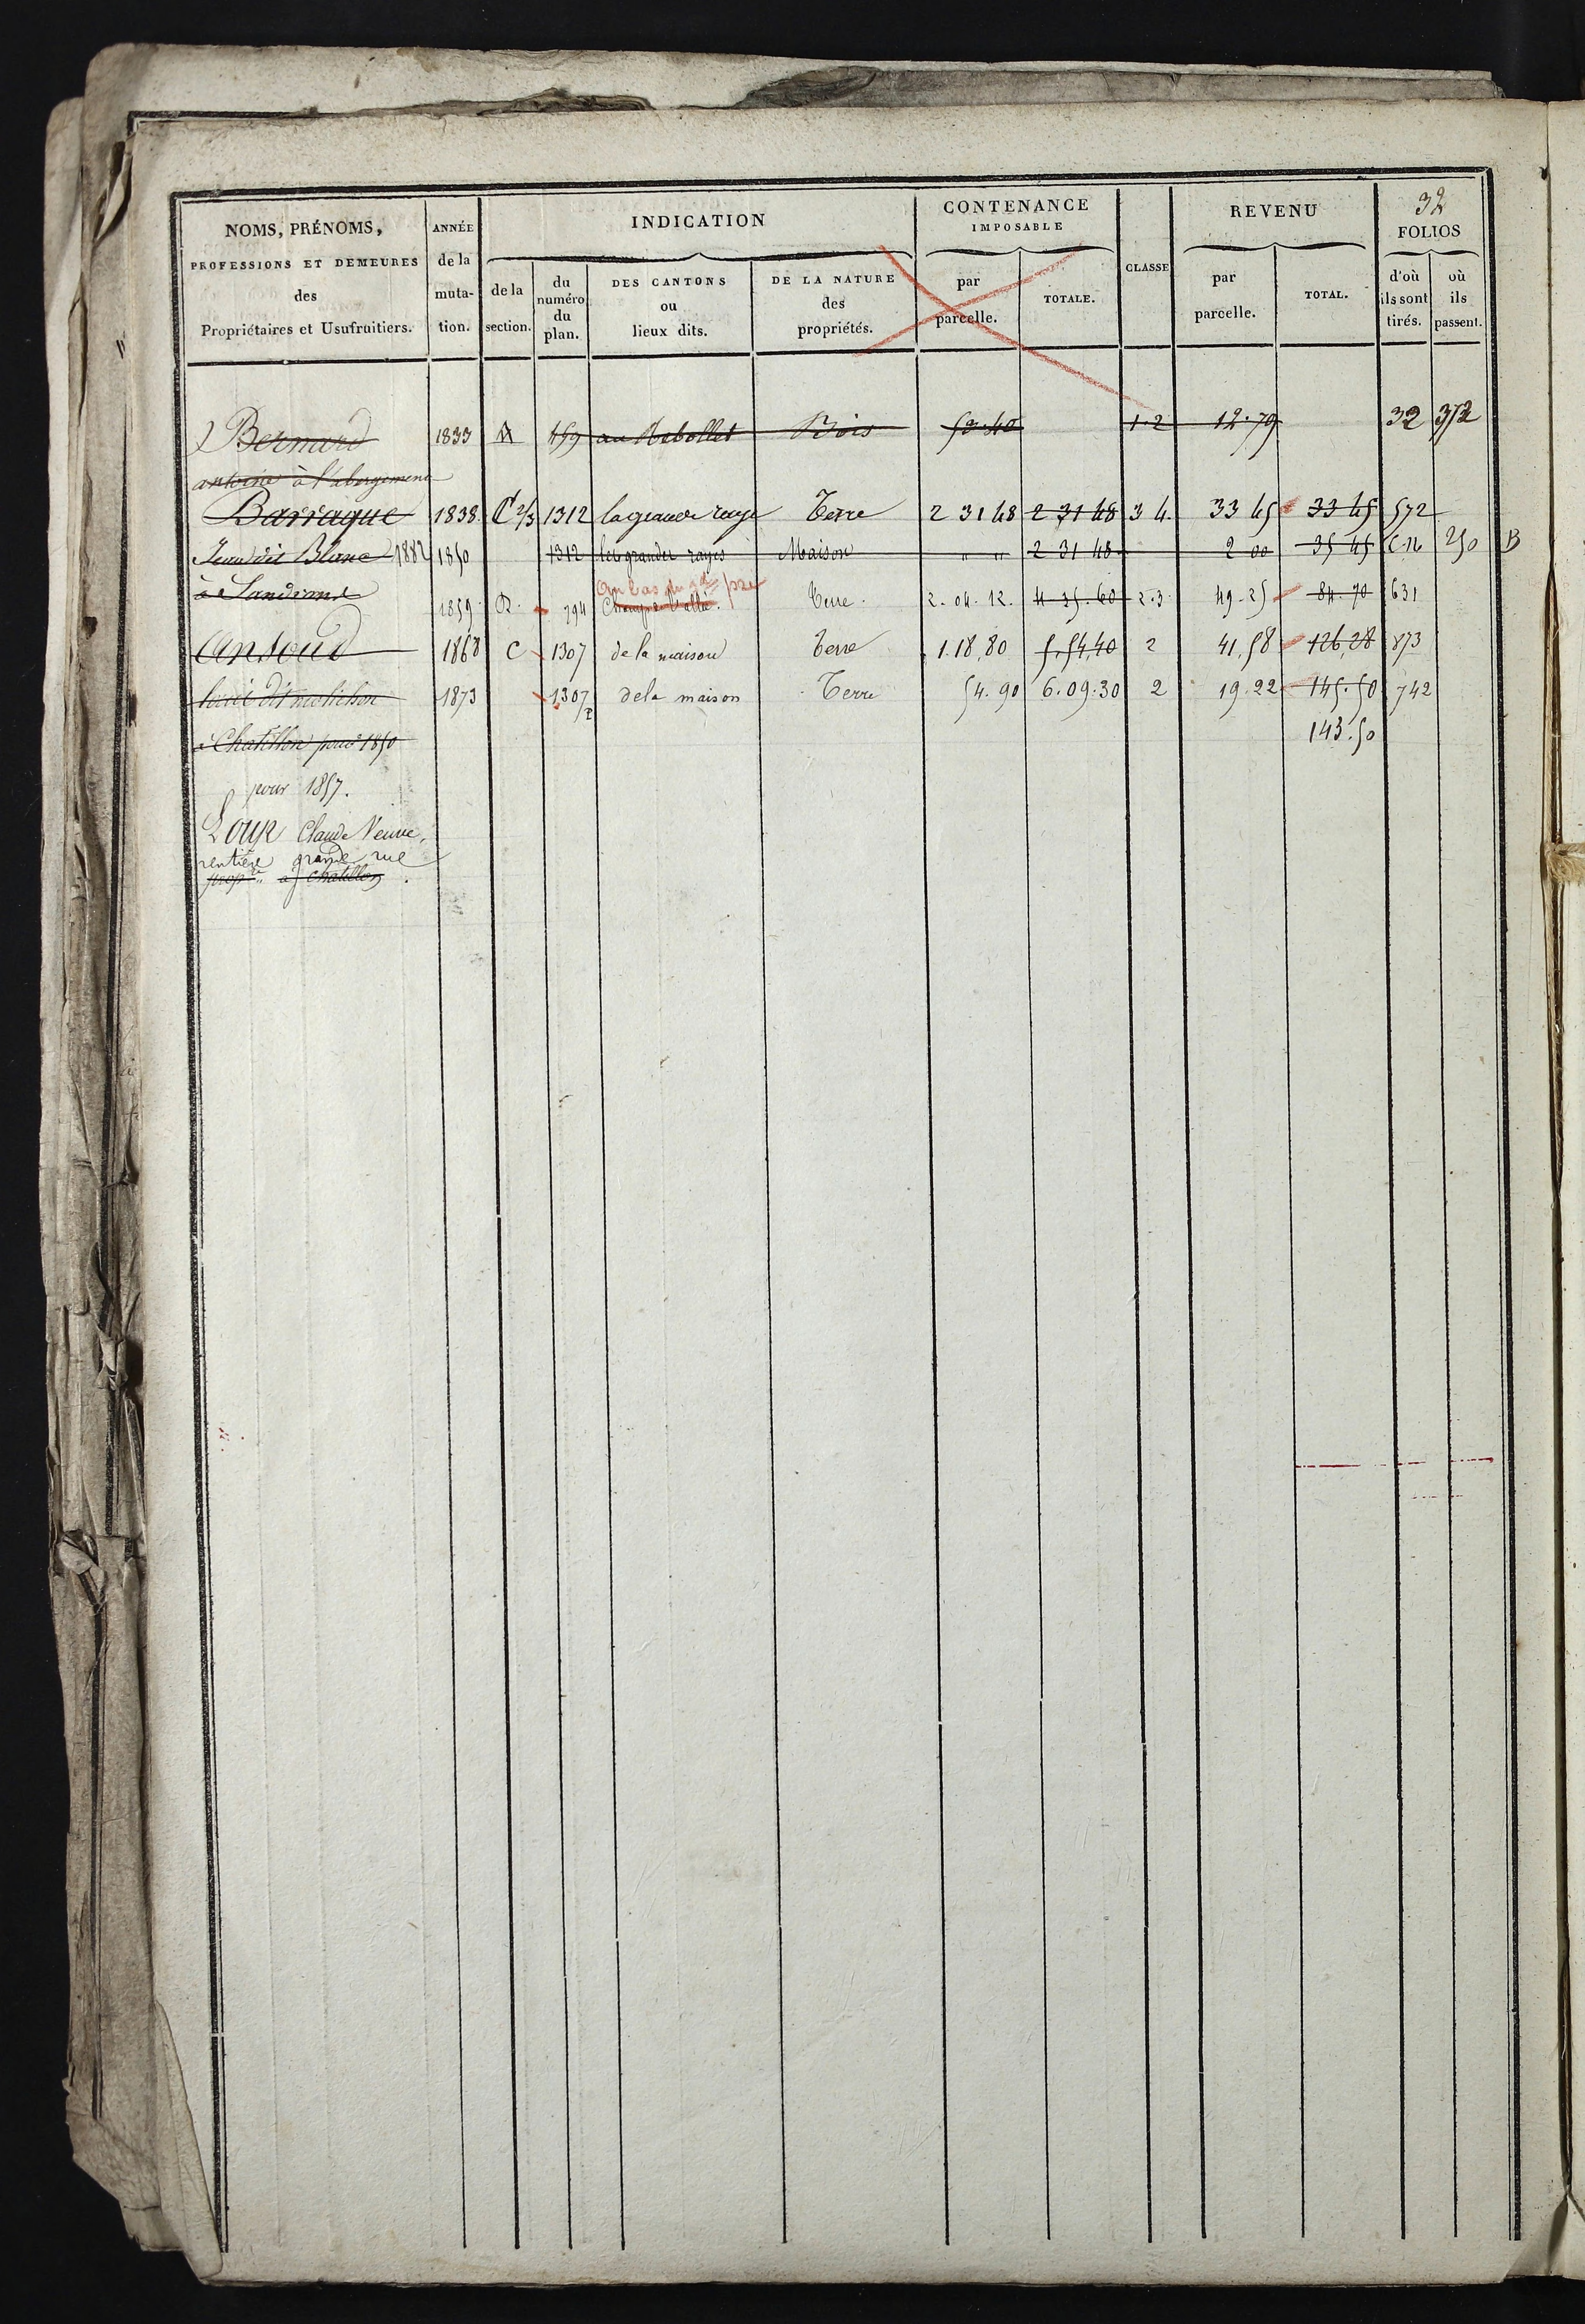 32
NOMS, PRÉNOMS, PROFESSIONS ET DEMEURES des Propriétaires et Usufruitiers.
ANNÉE de la muta-tion.
INDICATION
de la section.
du numéro du plan.
DES CANTONS ou lieux dits.
DE LA NATURE des propriétés.
CONTENANCE IMPOSABLE
par parcelle.
TOTALE.
CLASSE
REVENU
par parcelle.
TOTAL.
FOLIOS
d'où ils sont tirés.
où ils passent.
Bernard 1833 159 Bois 53.40 1.2 12.79 32 352
antoine à l'abergement
Barraque 1838. C 2/3 1312 la grande raye Terre 2 31 48 2 31 48 3 4. 33 45 33 45 572
Jean dit Blanc 1882 1850 1312 les grandes rayes Maison " " 2 31 48 2 00 35 45 250 B
au bas du gd pré
à 1859. 794 Terre. 2.04.12. 4 35.60 2.3 49.25 84.70 631
1868 C 1307 de la maison Terre 1.18,80 5.54,40 2 41,58 126,28 873
1873 1307 de la maison Terre 54.90 6.09.30 2 19.22 145.50 742
à Chatillon pour 1850 143.50
pour 1857.
Loup Claude Veuve,
rentière grande rue
propre à chatillon.